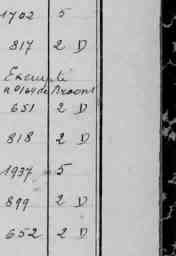 1702 5
817 2 D
Exempté
n°164 de Braons
651 2 D
818 2 D
1937 5
899 2 D
652 2 D